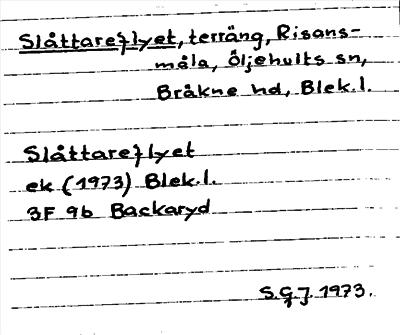 Slåttareflyet, terräng, Risans-
måla, Öljehults sn,
Bräkne hd, Blek.l.
Slåttareflyet
ek (1973) Blek.l.
3F 9b Backaryd
S.G.J. 1973.